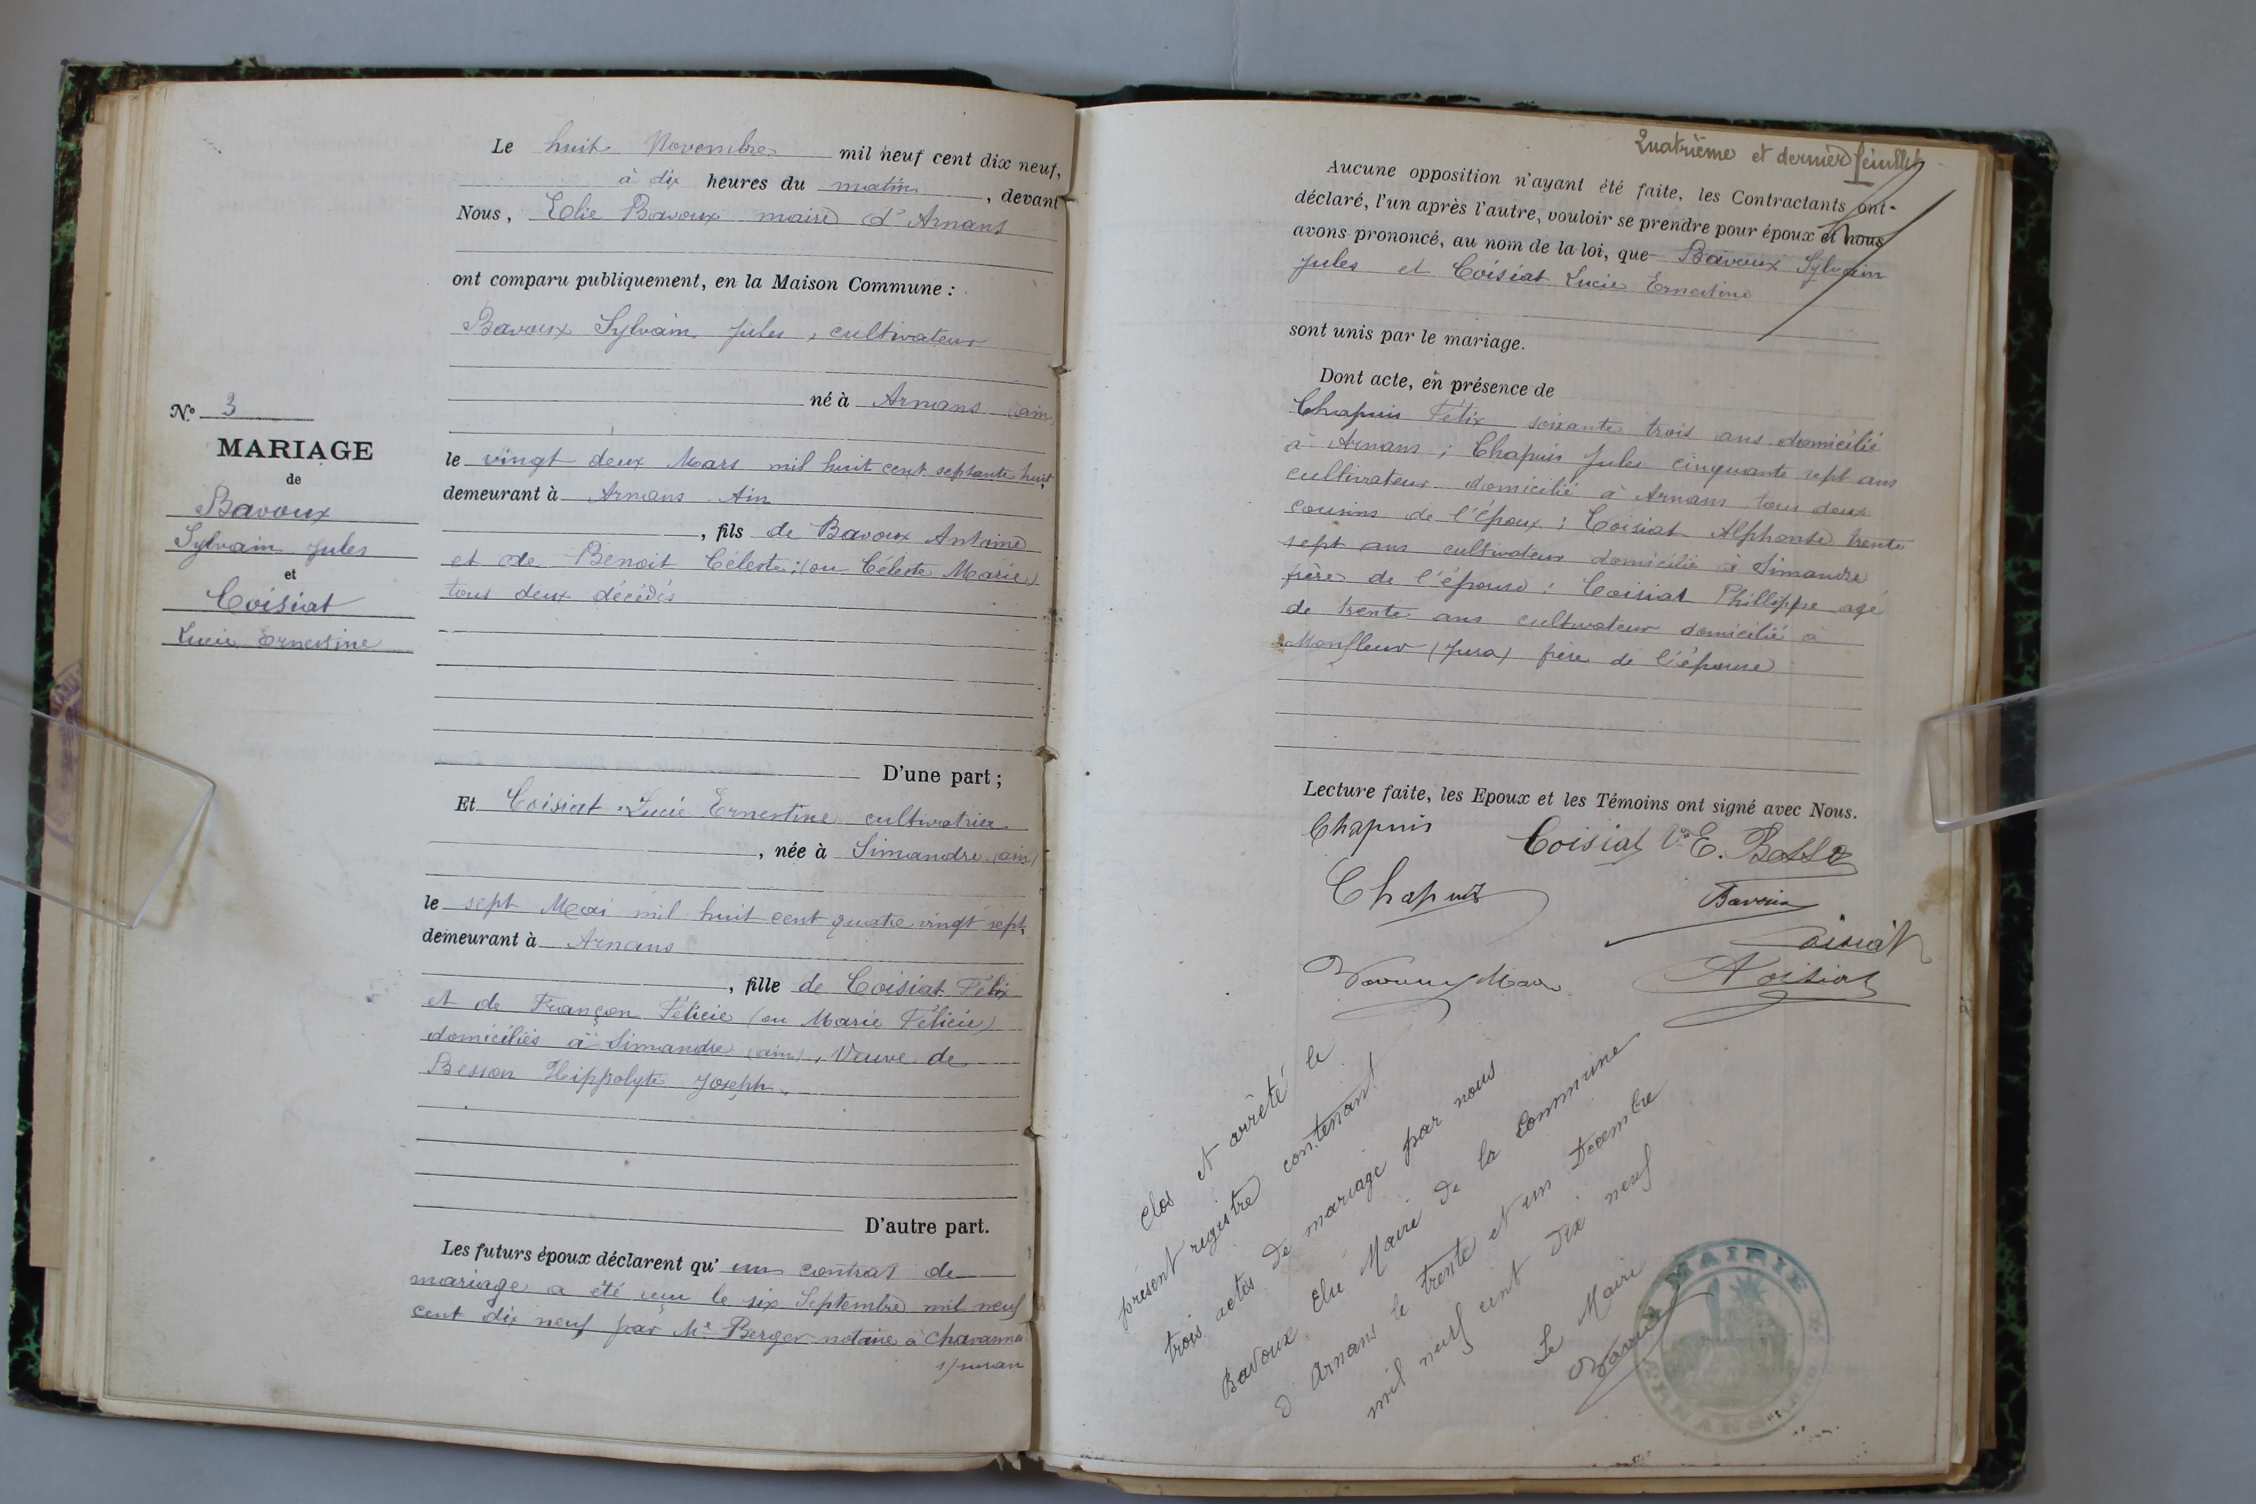 Le huit Novembre mil neuf cent dix neuf,
à dix heures du matin, devant
Nous, Elie Bavoux maire d'Arnans
ont comparu publiquement, en la Maison Commune :
Bavoux Sylvain Jules, cultivateur
né à Arnans (ain)
le vingt deux Mars mil huit cent septante huit,
demeurant à Arnans Ain
, fils de Bavoux Antoine
et de Benoit Céleste; (ou Céleste Marie)
tous deux décédés
D'une part ;
N° 3
MARIAGE
de
Bavoux
Sylvain Jules
et
Coisiat
Lucie Ernestine
Et Coisiat Lucie Ernestine cultivatrice
, née à Simandre (ain)
le sept Mai mil huit cent quatre vingt sept,
demeurant à Arnans
, fille de Coisiat Félix
et de Françon Félicie (ou Marie Félicie)
domiciliés à Simandre (ain), Veuve de
Besson Hippolyte Joseph.
D'autre part.
Les futurs époux déclarent qu' un contrat de
mariage a été reçu le six Septembre mil neuf
cent dix neuf par Me Berger notaire à Chavannes
s/suran
Quatrième et dernier feuillet
Aucune opposition n'ayant été faite, les Contractants ont
déclaré, l'un après l'autre, vouloir se prendre pour époux et nous
avons prononcé, au nom de la loi, que Bavoux Sylvain
Jules et Coisiat Lucie Ernestine
sont unis par le mariage.
Dont acte, en présence de
Chapuis Félix soixante trois ans domicilié
à Arnans ; Chapuis Jules cinquante sept ans
cultivateur domicilié à Arnans tous deux
cousins de l'époux ; Coisiat Alphonse trente
sept ans cultivateur domicilié à Simandre
frère de l'épouse ; Coisiat Phillippe agé
de trente ans cultivateur domicilié à
Monfleur (Jura) frère de l'épouse
Lecture faite, les Epoux et les Témoins ont signé avec Nous.
Chapuis Coisiat Ve E.
Chapuis Bavoux
Coisiat
Bavoux Maire Coisiat
Clos et arrêté le
présent registre contenant
trois actes de mariage par nous
Bavoux Elie Maire de la Commune
d'Arnans le trente et un Décembre
mil neuf cent dix neuf
Le Maire
Bavoux
MAIRIE